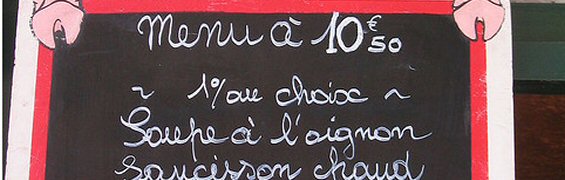 Menu à 10€50
~ 1 % au choix ~
Soupe à l'oignon
Saucisson chaud